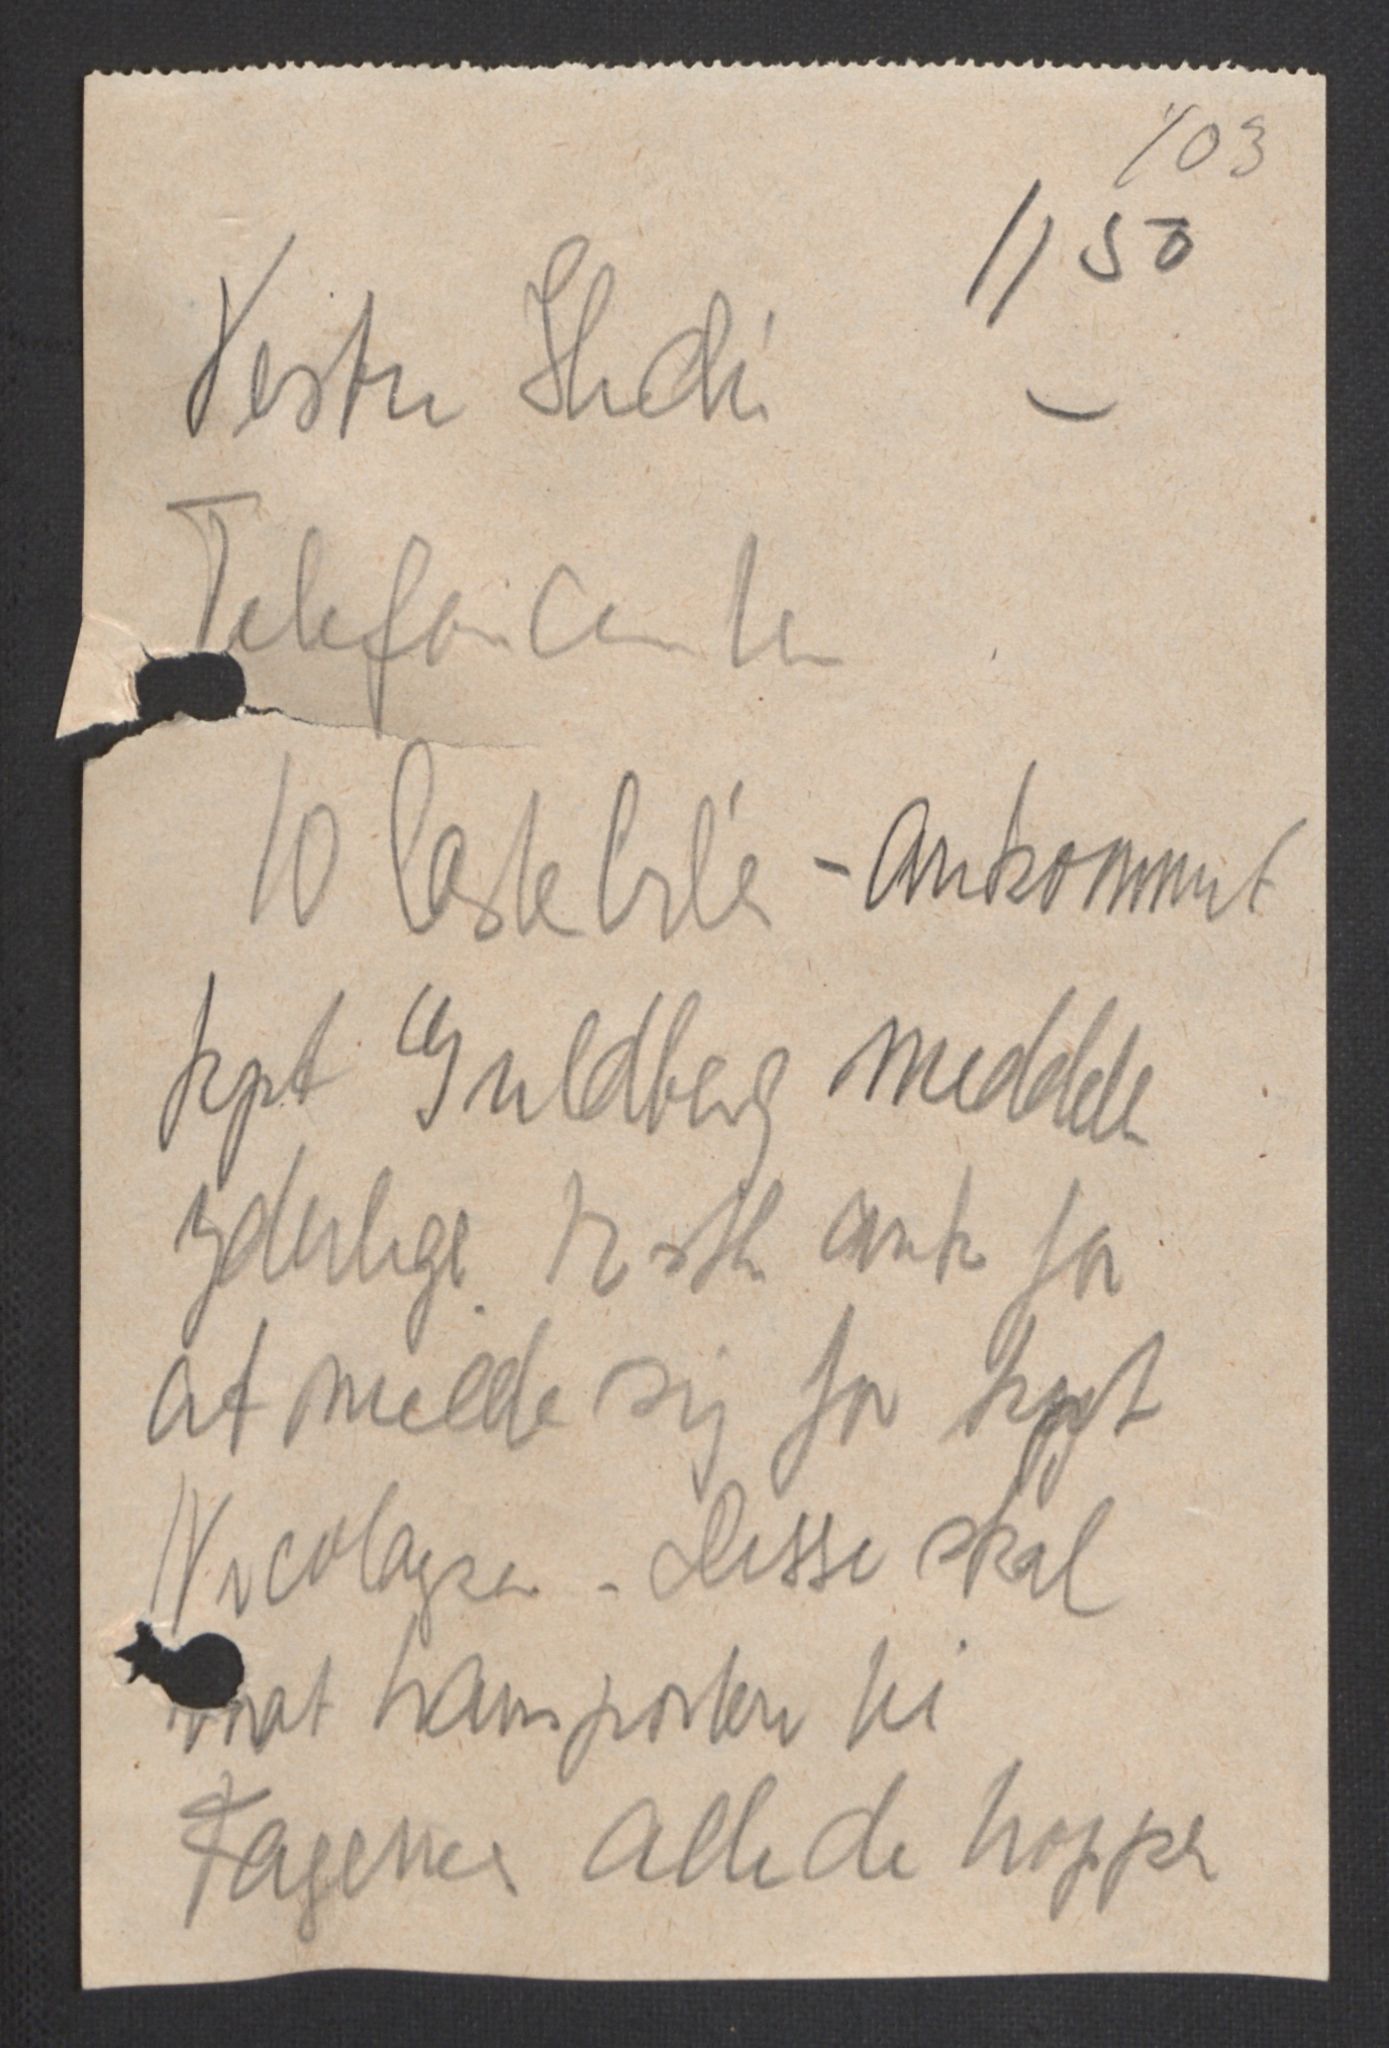 103
11 50
Vestre Slidre
Telefoncentralen
10 lastebiler - ankommet
kpt Guldberg meddeler
yderlige ank for
at melde sig for kpt
Nicolaysen - Disse skal
transportere til
Fagernes alle de tropper